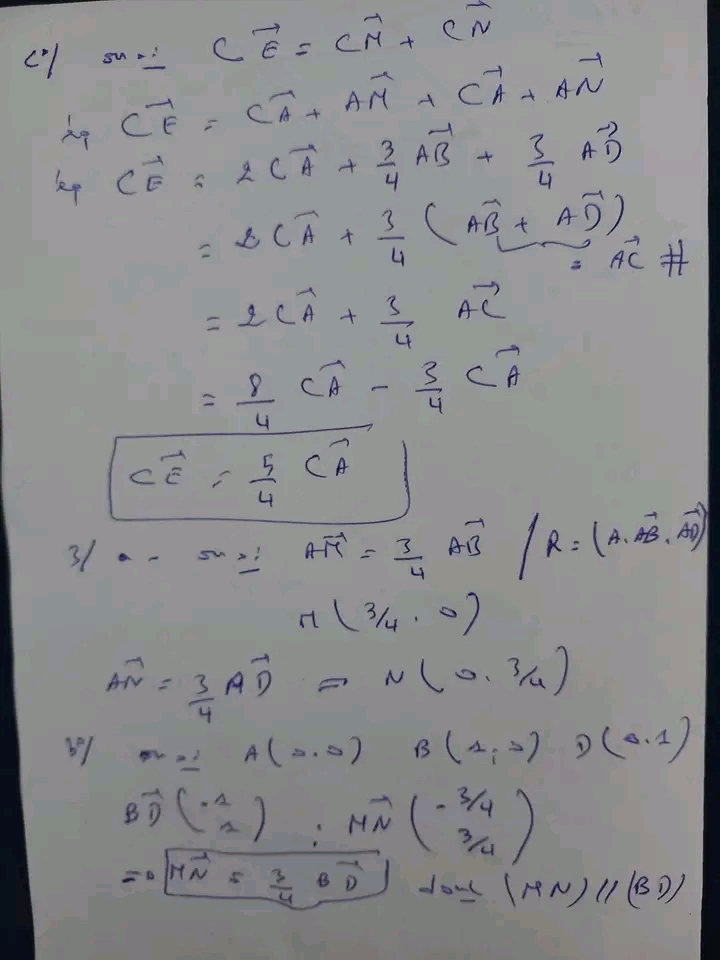 c°/ on a: CE⃗ = CM⃗ + CN⃗
éq CE⃗ = CA⃗ + AM⃗ + CA⃗ + AN⃗
éq CE⃗ = 2 CA⃗ + 3/4 AB⃗ + 3/4 AD⃗
= 2 CA⃗ + 3/4 ( AB⃗ + AD⃗ )
= AC⃗ #
= 2 CA⃗ + 3/4 AC⃗
= 8/4 CA⃗ - 3/4 CA⃗
CE⃗ = 5/4 CA⃗
3/ a - on a: AM⃗ = 3/4 AB⃗ / R = (A. AB⃗. AD⃗)
M ( 3/4 . 0 )
AN⃗ = 3/4 AD⃗ => N ( 0. 3/4 )
b°/ on a: A(0.0) B(1,0) D(0.1)
BD⃗ (-1 1) ; MN⃗ (-3/4 3/4)
=> MN⃗ = 3/4 BD⃗ donc (MN) // (BD)